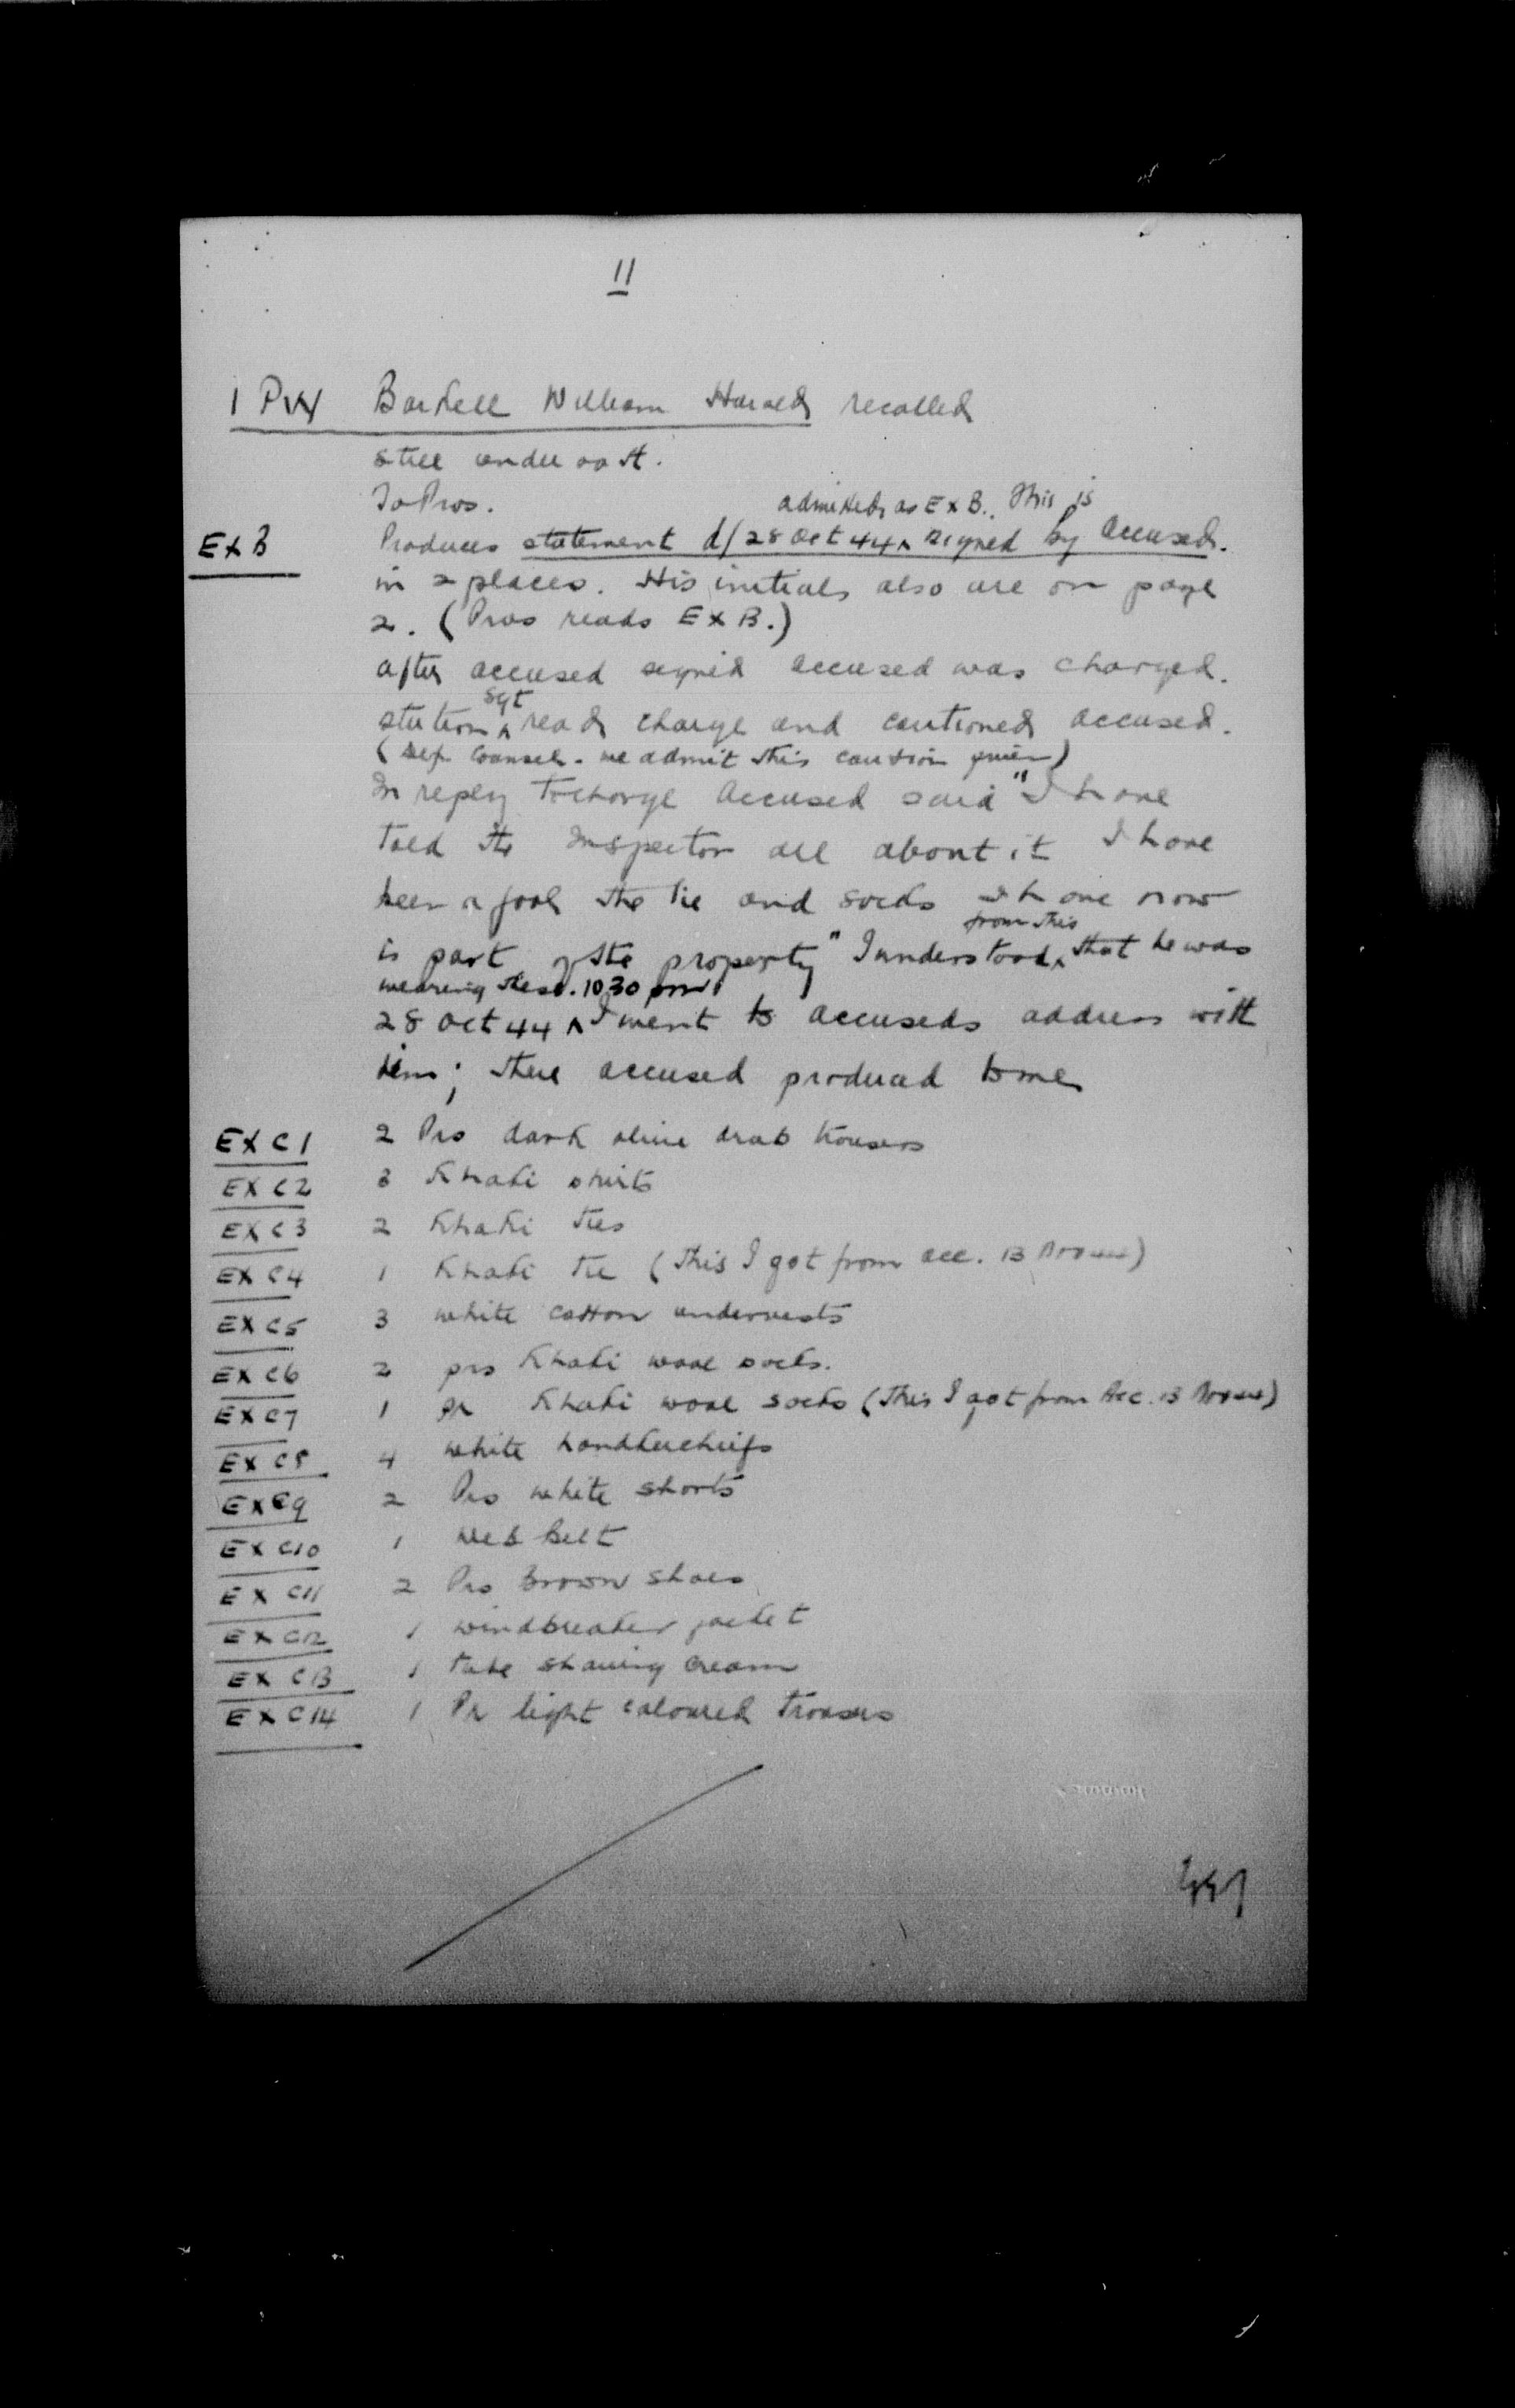 11
1 PW Barkell William Harold recalled
still under oath.
To Pros.
admitted as Ex B. This is
Ex B Produces statement d/28 Oct 44 ^ signed by accused.
in 2 places. His initials also are on page
2. (Pros reads Ex B.)
after accused signed accused was charged.
Sgt
station ^ read charge and cautioned accused.
(Def Counsel - we admit this caution given)
In reply to charge accused said "I have
told the Inspector all about it I have
been a fool the tie and socks I have now
from this
is part of the property" I understood ^ that he was
wearing these. 1030 pm
28 Oct 44 ^ I went to accuseds address with
him; there accused produced to me
Ex C1 2 Prs dark olive drab trousers
Ex C2 3 Khaki shirts
Ex C3 2 Khaki ties
Ex C4 1 Khaki tie (This I got from acc. 13
Ex C5 3 white cotton undervests
Ex C6 2 prs Khaki wool socks.
Ex C7 1 pr Khaki wool socks (This I got from Acc. 13
Ex C8 4 white handkerchiefs
Ex C9 2 Prs white shorts
Ex C10 1 web belt
Ex C11 2 Prs Brown shoes
Ex C12 1 windbreaker jacket
Ex C13 1 tube shaving cream
Ex C14 1 Pr light coloured trousers